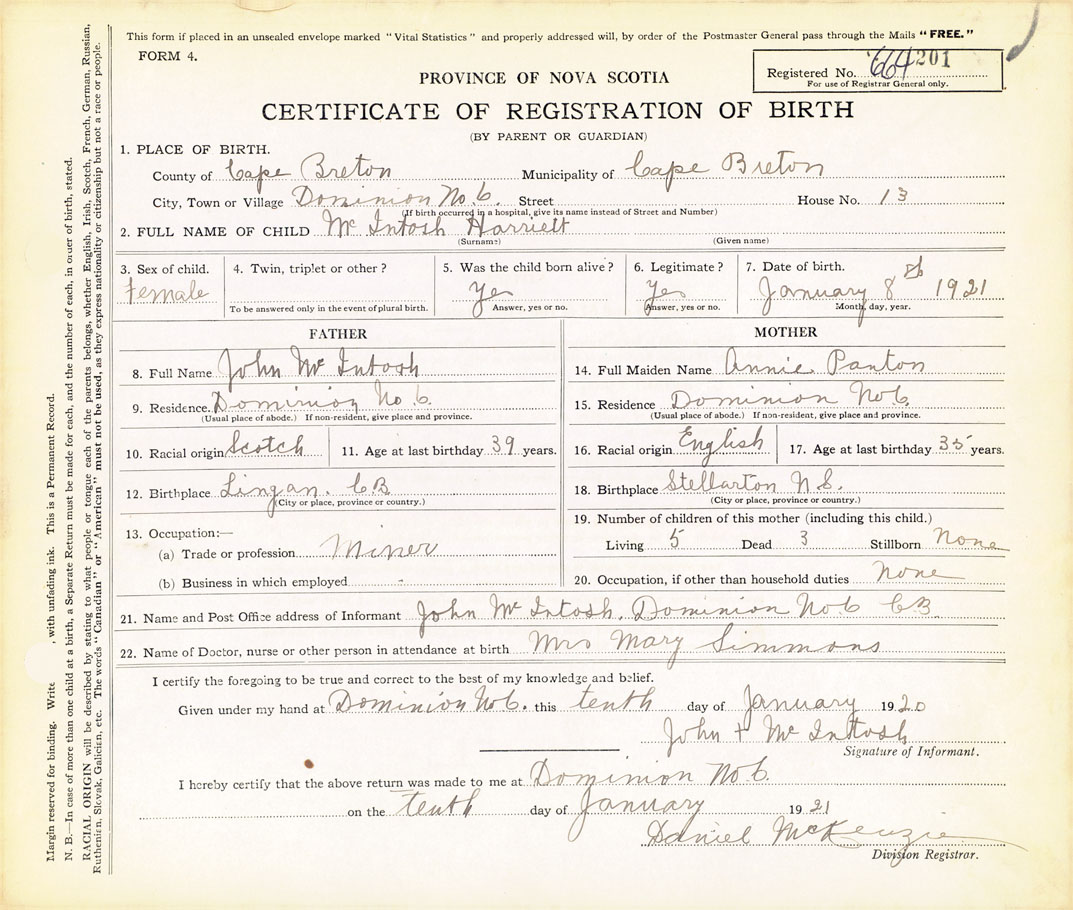 This form if placed in an unsealed envelope marked "Vital Statistics" and properly addressed will, by order of the Postmaster General pass through the Mails "FREE."
FORM 4.
Registered No. 664 201
For use of Registrar General only.
PROVINCE OF NOVA SCOTIA
CERTIFICATE OF REGISTRATION OF BIRTH
(BY PARENT OR GUARDIAN)
1. PLACE OF BIRTH.
County of Cape Breton Municipality of Cape Breton
City, Town or Village Dominion No. 6. Street House No. 13
(If birth occurred in a hospital, give its name instead of Street and Number)
2. FULL NAME OF CHILD Mc Intosh Harriett
(Surname) (Given name)
3. Sex of child. 4. Twin, triplet or other? 5. Was the child born alive? 6. Legitimate? 7. Date of birth.
Female Yes Yes January 8th 1921
To be answered only in the event of plural birth. Answer, yes or no. Answer, yes or no. Month, day, year.
FATHER MOTHER
8. Full Name John Mc Intosh 14. Full Maiden Name Annie Panton
9. Residence. Dominion No 6. 15. Residence Dominion No 6.
(Usual place of abode.) If non-resident, give place and province. (Usual place of abode.) If non-resident, give place and province.
10. Racial origin Scotch 11. Age at last birthday 39 years. 16. Racial origin English 17. Age at last birthday 35 years.
12. Birthplace Lingan. CB 18. Birthplace Stellarton N.S.
(City or place, province or country.) (City or place, province or country.)
13. Occupation:— 19. Number of children of this mother (including this child.)
(a) Trade or profession Miner Living 5 Dead 3 Stillborn None
(b) Business in which employed - 20. Occupation, if other than household duties None
21. Name and Post Office address of Informant John Mc Intosh, Dominion No 6 CB.
22. Name of Doctor, nurse or other person in attendance at birth Mrs Mary Simmons
I certify the foregoing to be true and correct to the best of my knowledge and belief.
Given under my hand at Dominion No 6. this tenth day of January 1920
John + Mc Intosh
Signature of Informant.
I hereby certify that the above return was made to me at Dominion No 6.
on the tenth day of January 1921
Daniel McKenzie
Division Registrar.
Margin reserved for binding. Write , with unfading ink. This is a Permanent Record.
N. B.—In case of more than one child at a birth, a Separate Return must be made for each, and the number of each, in order of birth, stated.
RACIAL ORIGIN will be described by stating to what people or tongue each of the parents belongs, whether English, Irish, Scotch, French, German, Russian,
Ruthenian, Slovak, Galicien, etc. The words "Canadian" or "American" must not be used, as they express nationality or citizenship but not a race or people.